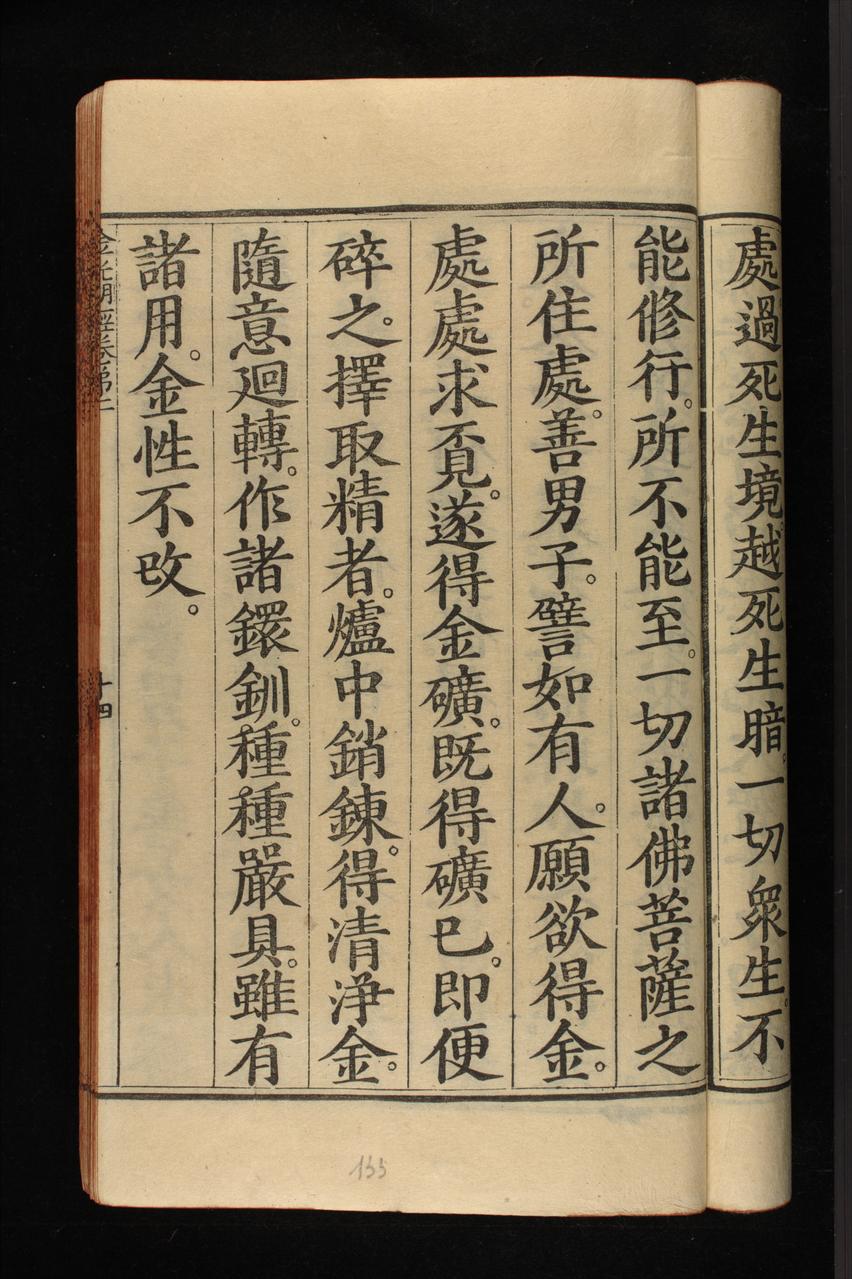 處過死生境。越死生暗。一切衆生。不
能修行。所不能至。一切諸佛菩薩之
所住處。善男子。譬如有人。願欲得金。
處處求覓。遂得金礦。既得礦已。即便
碎之。擇取精者。爐中銷鍊。得清淨金。
隨意迴轉。作諸鐶釧。種種嚴具。雖有
諸用。金性不改。
金光明經卷第二
十四
155